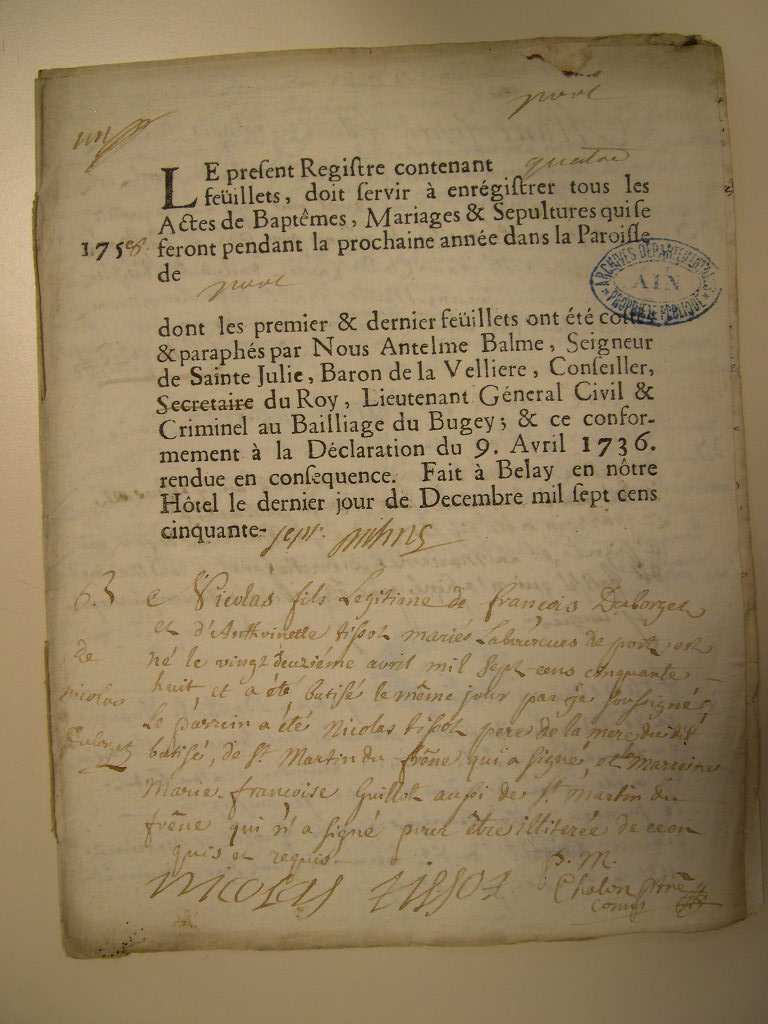 port
LE preſent Regiſtre contenant quatre
feüillets, doit ſervir à enrégiſtrer tous les
Actes de Baptêmes, Mariages & Sepultures qui ſe
1758. feront pendant la prochaine année dans la Paroiſſe
de port
ARCHIVES DÉPARTEMENTALES
AIN
PROPRIÉTÉ PUBLIQUE
dont les premier & dernier feüillets ont été cottés
& paraphés par Nous Antelme Balme, Seigneur
de Sainte Julie, Baron de la Velliere, Conſeiller,
Secretaire du Roy, Lieutenant Géneral Civil &
Criminel au Bailliage du Bugey; & ce confor-
mement à la Déclaration du 9. Avril 1736.
rendue en conſequence. Fait à Belay en nôtre
Hôtel le dernier jour de Decembre mil ſept cens
cinquante-sept.
Nicolas fils Legitime de françois Duborget
et d'Anthoinette tissot mariés Laboureurs de port est
né le vingt deuziéme avril mil sept cens cinquante
huit, et a été batisé le même jour par je soussigné,
Le parrein a été Nicolas tissot pere de la mere dudit
batisé, de st Martin du frêne qui a signé, et la Marreine
Marie-francoise Guillot aussi de st martin du
frêne qui n'a signé pour être illiterée de ce en
quis et requis.
de
nicolas
Duborget
nicolas tissot
Chalon ptre